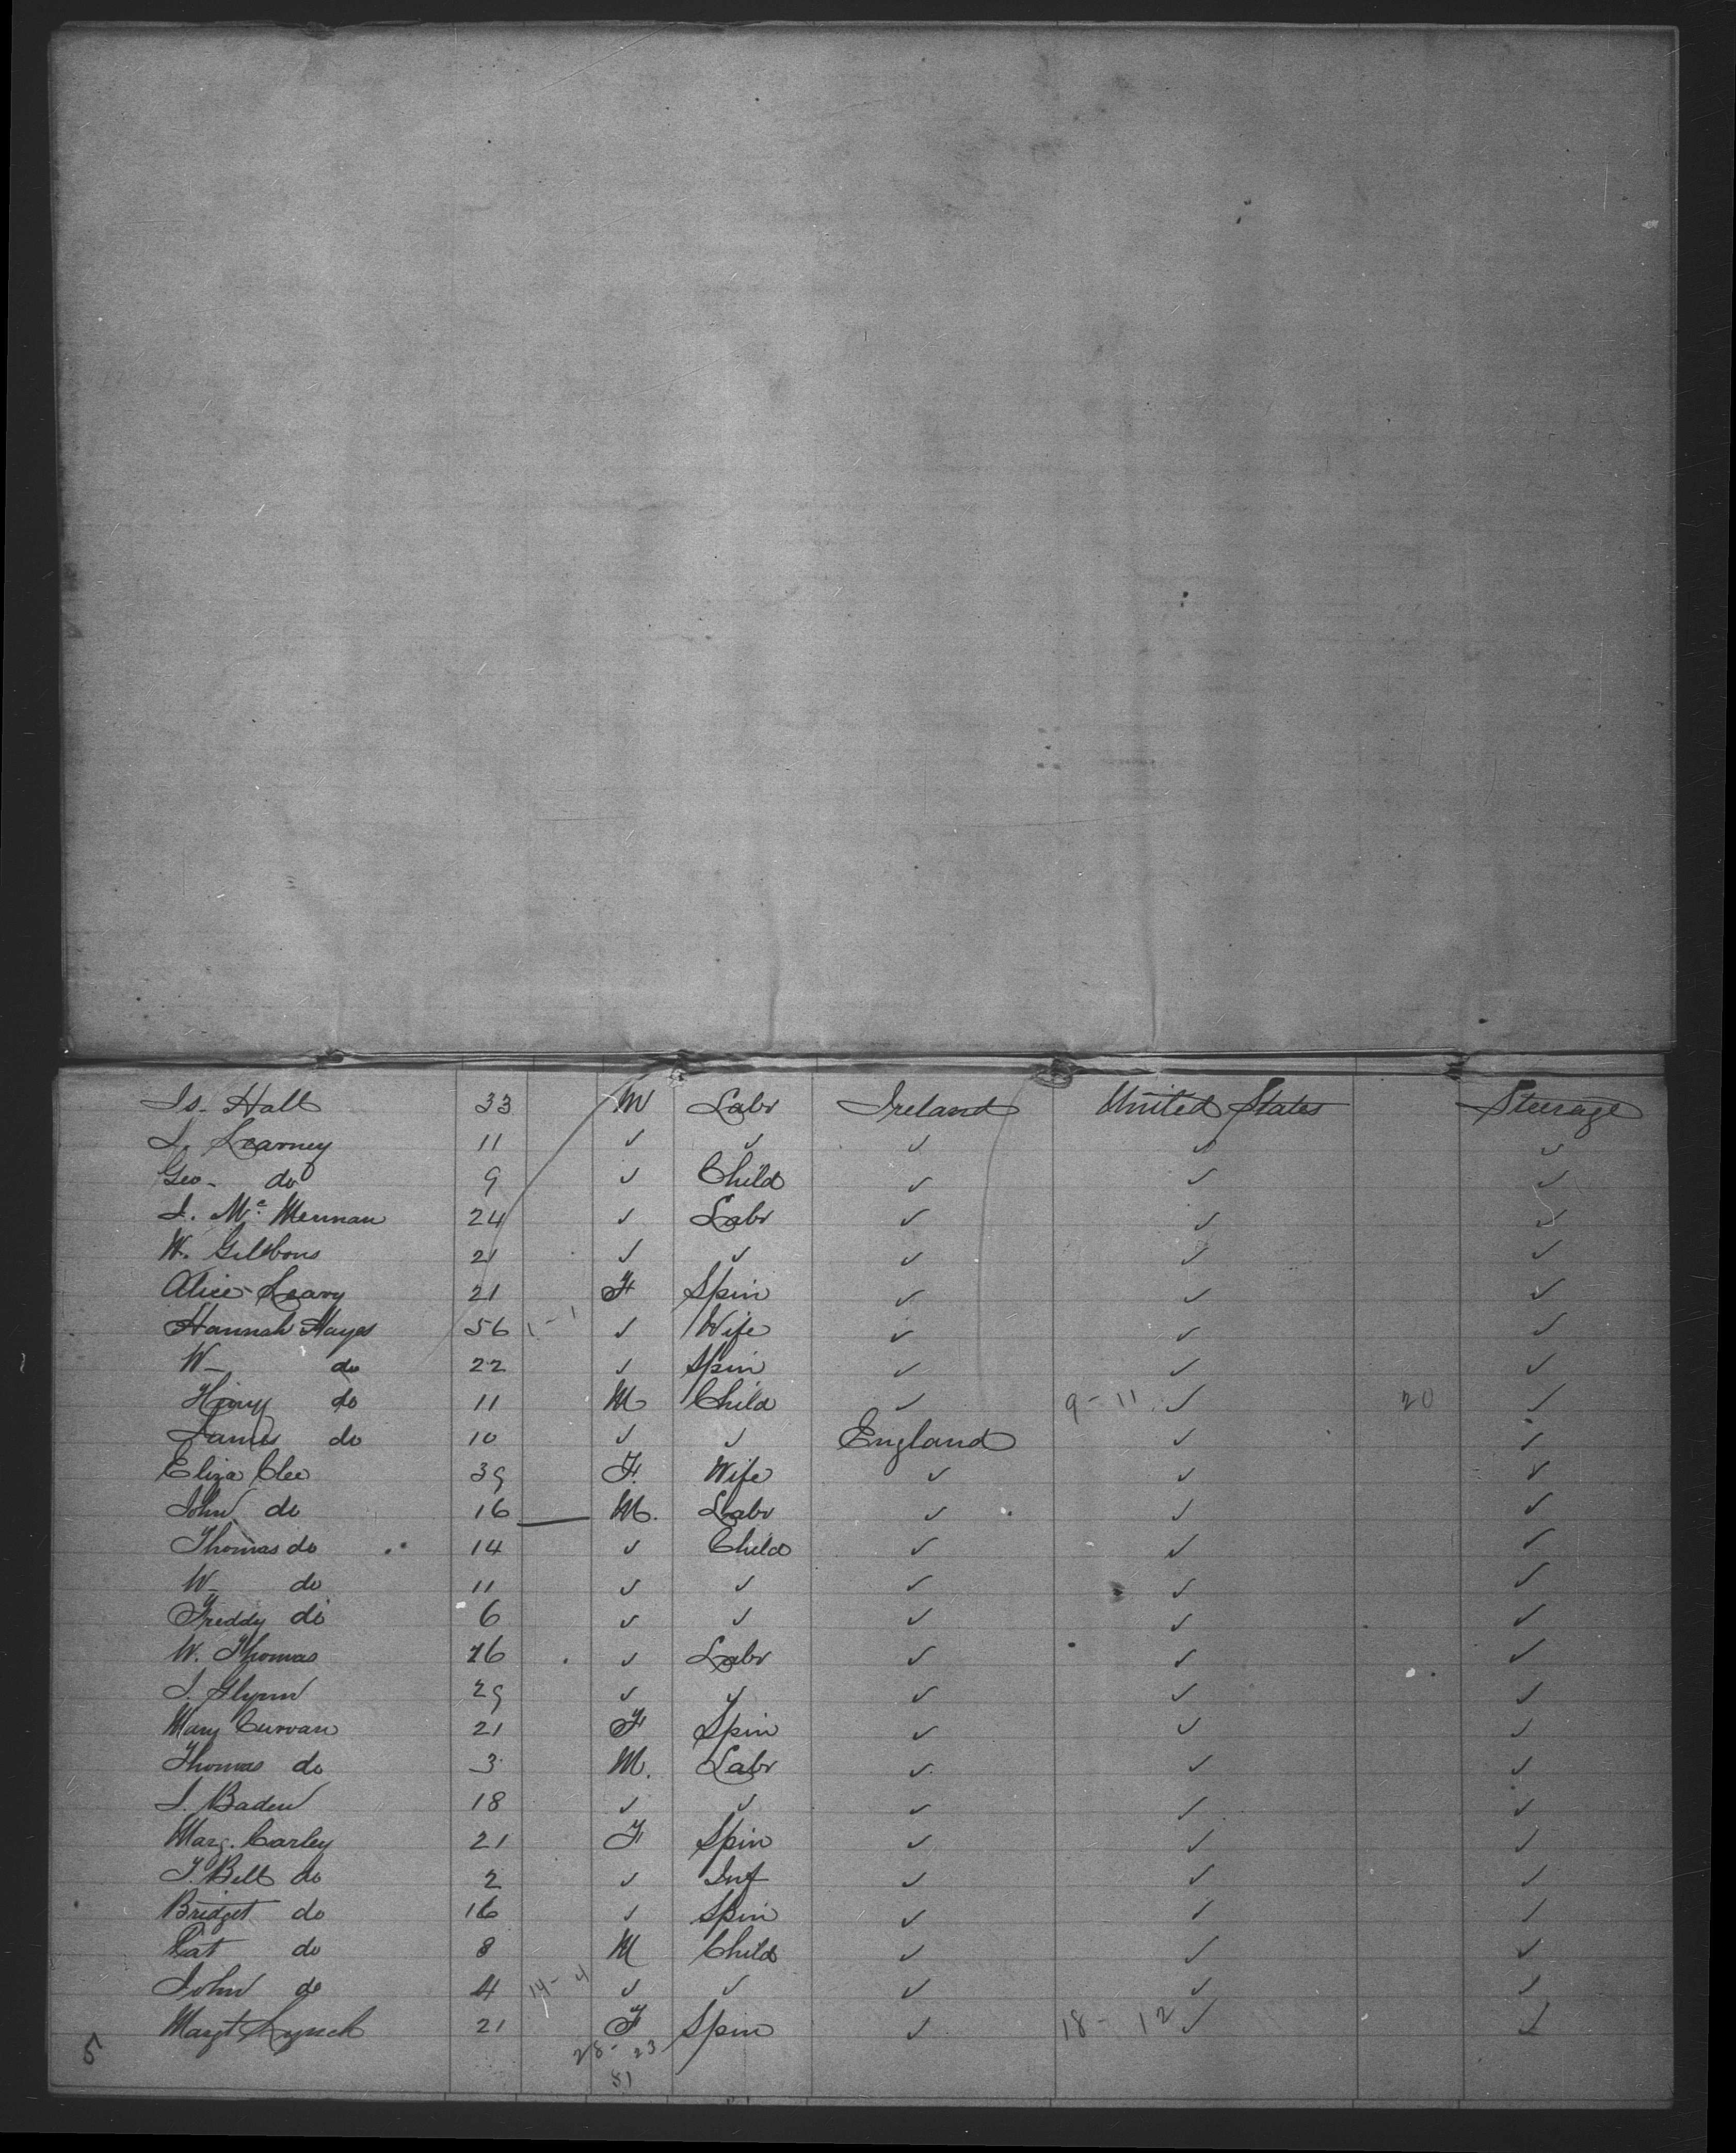 Is. Hall 33 M Labr Ireland United States Steerage
J. Kearney 11 ✓ ✓ ✓ ✓ ✓
Geo- do 9 ✓ Child ✓ ✓ ✓
J. Mc. Mennan 24 ✓ Labr ✓ ✓ ✓
W. Gibbons 21 ✓ ✓ ✓ ✓ ✓
Alice Leary 21 F Spin ✓ ✓ ✓
Hannah Hayes 56 1 - 1 ✓ Wife ✓ ✓ ✓
W- do 22 ✓ Spin ✓ ✓ ✓
Henry do 11 M Child ✓ 9 - 11 ✓ 20 ✓
James do 10 ✓ ✓ England ✓ ✓
Eliza Clee 39 F. Wife ✓ ✓ ✓
John do 16 M. Labr ✓ ✓ ✓
Thomas do 14 ✓ Child ✓ ✓ ✓
W- do 11 ✓ ✓ ✓ ✓ ✓
Freddy do 6 ✓ ✓ ✓ ✓ ✓
W. Thomas 26 ✓ Labr ✓ ✓ ✓
J. Glynn 29 ✓ ✓ ✓ ✓ ✓
Mary Curran 21 F Spin ✓ ✓ ✓
Thomas do 3 M. Labr ✓ ✓ ✓
J. Baden 18 ✓ ✓ ✓ ✓ ✓
Marg. Carley 21 F Spin ✓ ✓ ✓
T. Bell do 2 ✓ Inf ✓ ✓ ✓
Bridget do 16 ✓ Spin ✓ ✓ ✓
Pat do 8 M Child ✓ ✓ ✓
John do 4 14 - 4 ✓ ✓ ✓ ✓ ✓
Margt Lynch 21 F Spin ✓ 18 - 12 ✓ ✓
5 28 - 23
51